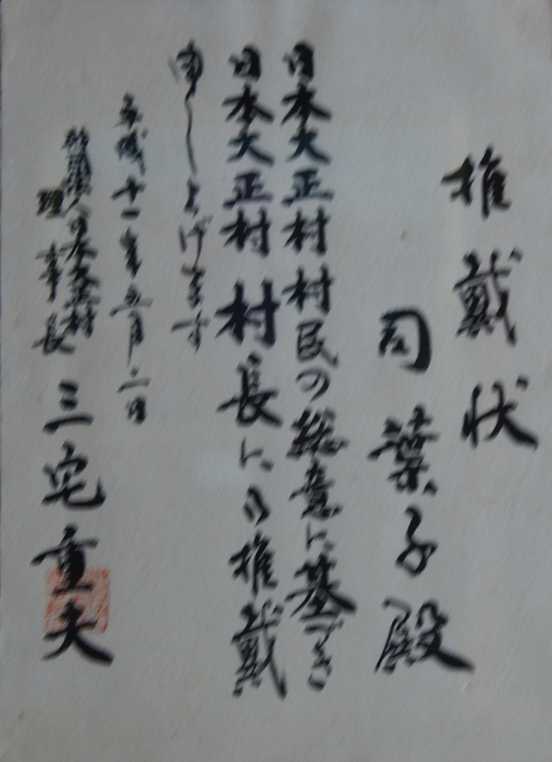 推戴状
司葉子殿
日本大正村村民の総意に基づき
日本大正村村長にご推戴
申し上げます
平成十一年五月二日
財団法人日本大正村
理事長 三宅重夫